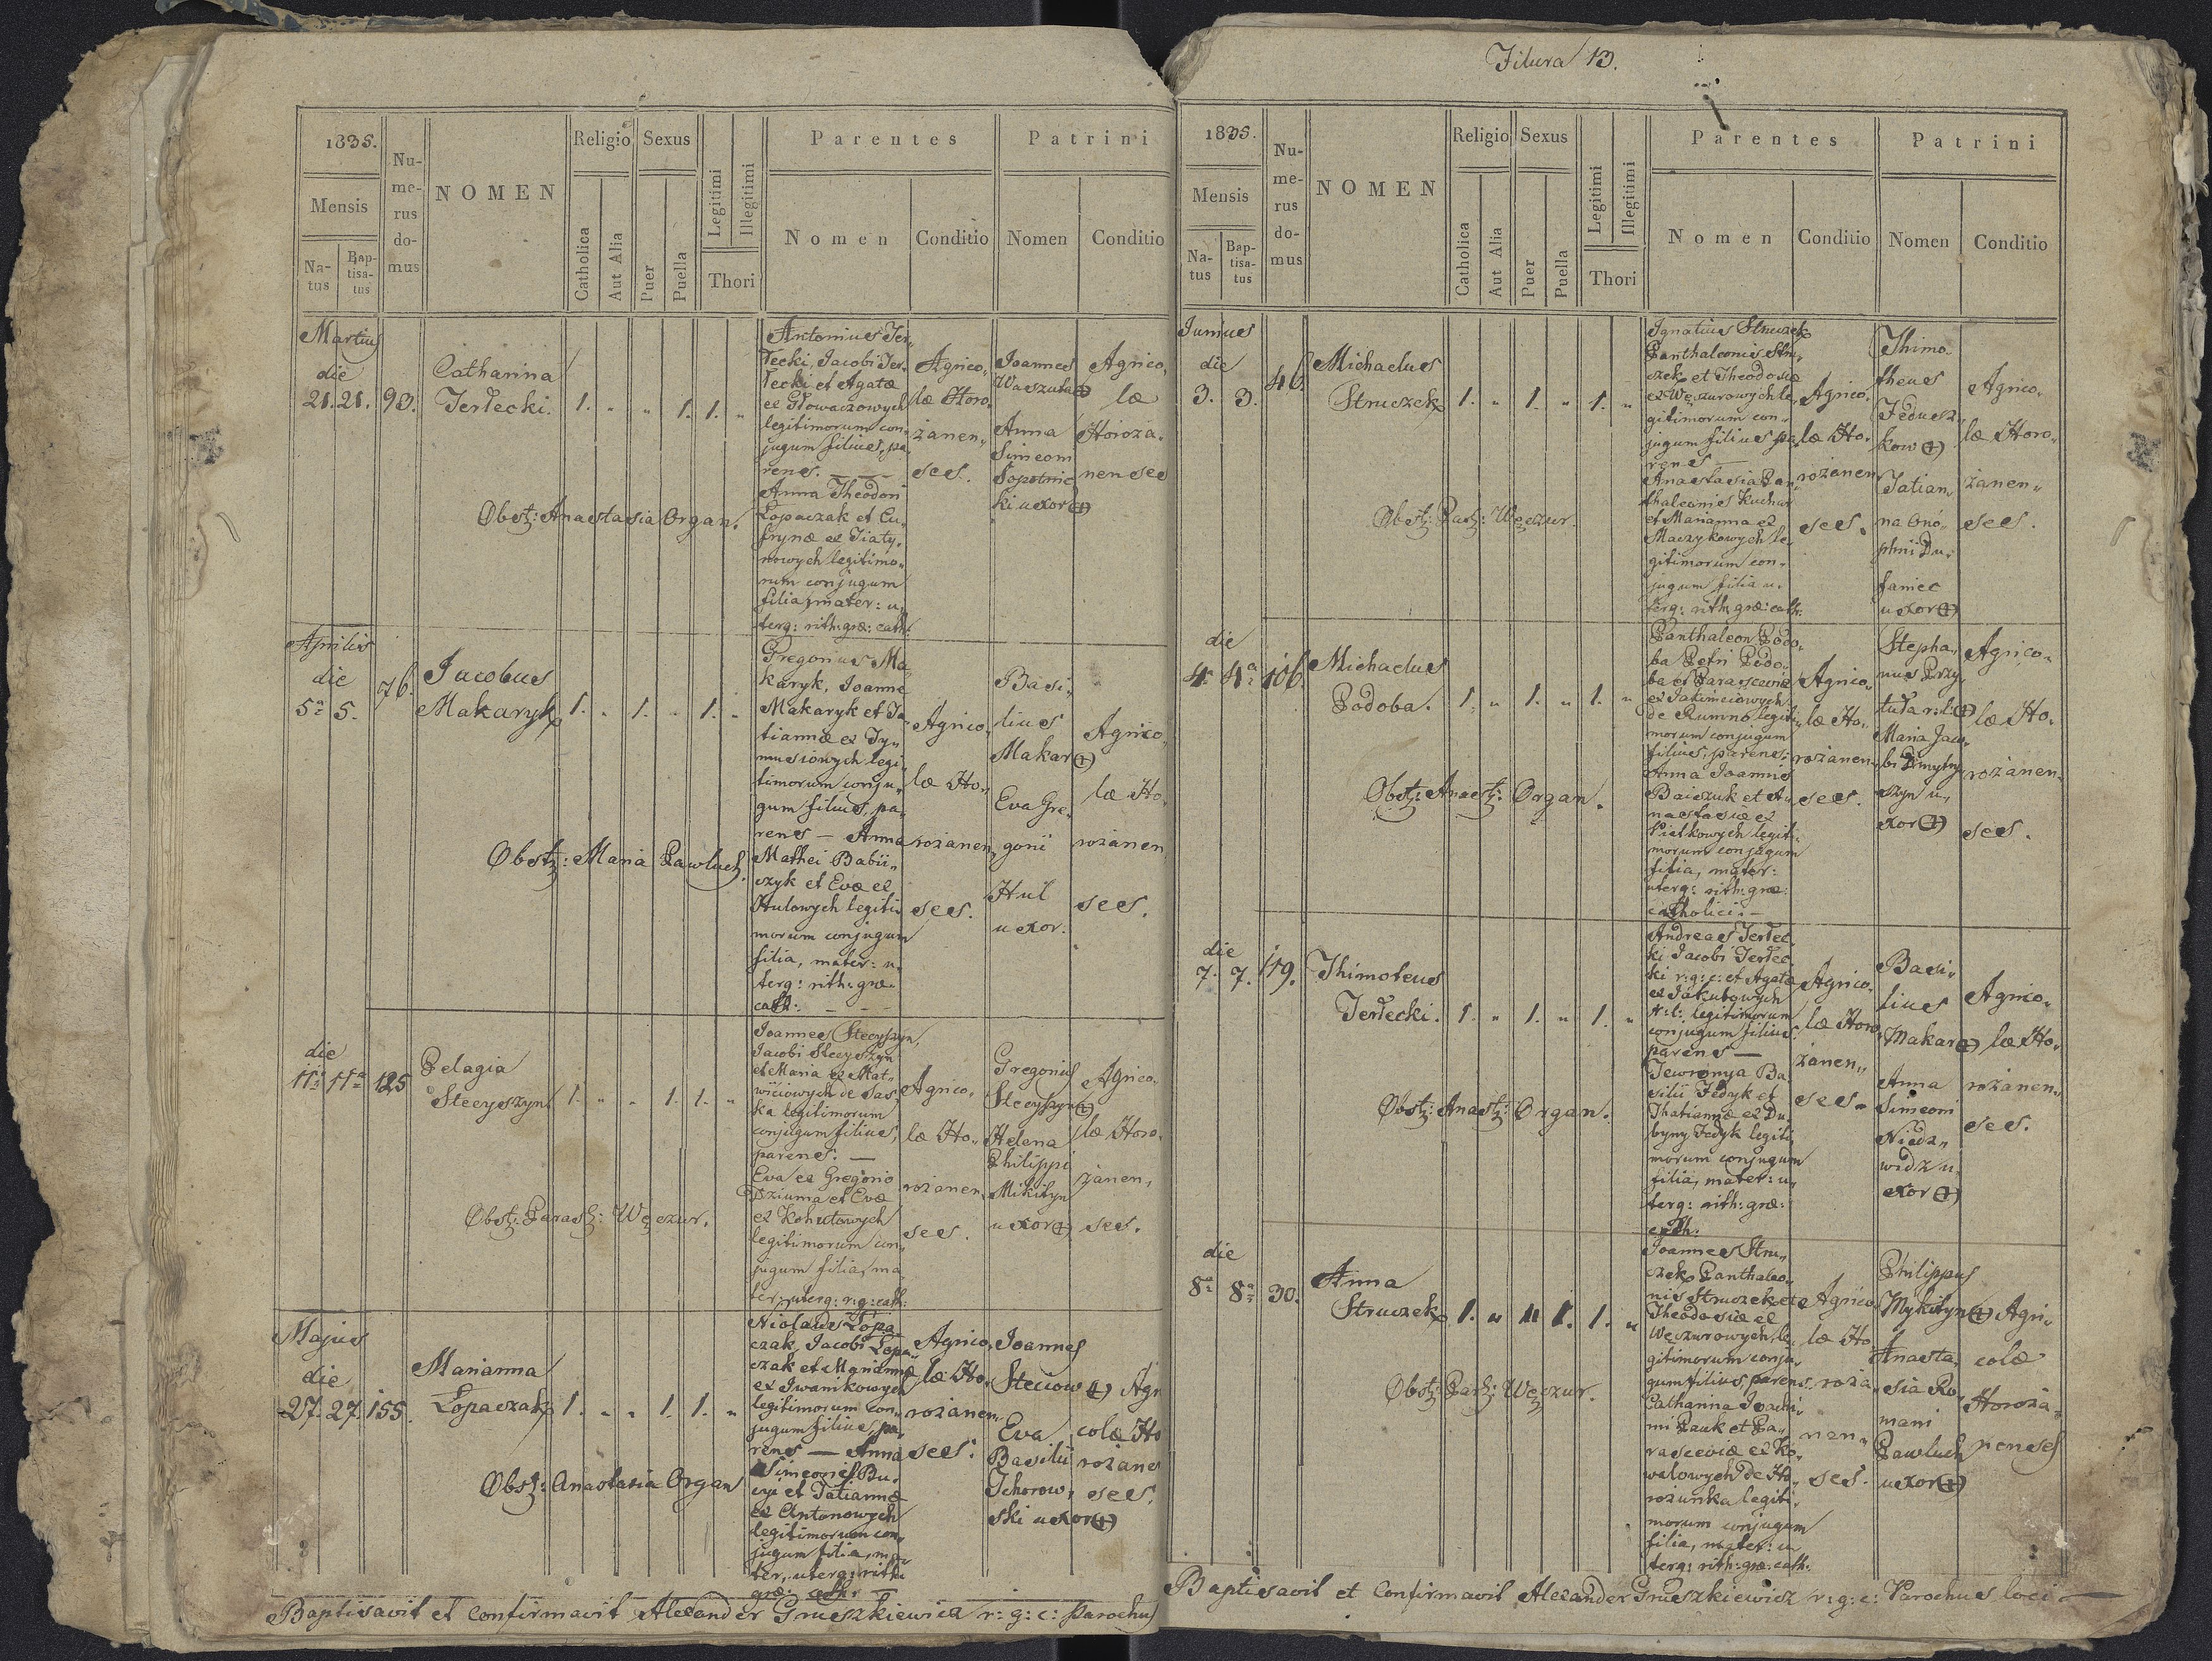 1835.
Mensis
Na-
tus
Bap-
tisa-
tus
Nu-
me-
rus
do-
mus
NOMEN
Religio
Catholica
Aut Alia
Sexus
Puer
Puella
Legitimi
Illegitimi
Thori
Parentes
Nomen
Conditio
Patrini
Nomen
Conditio
Martius
die
21. 21. 93.
Catharina
Terłecki.
1. " " 1. 1. "
Antonius Ter„
łecki, Jacobi Ter„
łecki et Agatæ
ex Głowaczowych
legitimorum con„
jugum filius, pa„
rens. —
Anna Theodori
Łopaczak et Eu„
frynæ ex Tiaty„
nowych legitimo„
rum conjugum
filia, mater: u„
terq: rith: græ: cath:
Agrico„
læ Horo„
żanen„
ses.
Joannes
Waszuta
Anna
Simeom
Sopotnic
ki uxor
Agrico„
læ
Horoża„
nenses
Obst: Anastasia Organ.
Aprilis
die
5a 5. 76.
Jacobus
Makaryk
1. " 1. " 1. "
Gregorius Ma
karyk, Joanne
Makaryk et Ta
tiannæ ex Ty„
musiowych legi„
timorum conju„
gum filius, pa„
rens — Anna
Mathei Babii„
czyk et Evæ ex
Hulowych legiti„
morum conjugum
filia, mater: u„
terq: rith: græ:
cath: —
Agrico„
læ Ho„
rożanen„
ses.
Basi„
lius
Makar
Eva Gre„
gorii
Hul
uxor.
Agrico„
læ Ho„
rożanen
ses.
Obst: Maria Pawluch.
die
11a 11a 125
Pelagia
Stecyszyn
1. " " 1. 1. "
Joannes Stecyszyn,
Jacobi Stecyszyn
et Maria ex Mat„
wiiciowych de Sas„
ka legitimorum
conjugum filius,
parens: —
Eva ex Gregorio
Dziuma et Evæ
ex Kohutowych
legitimorum con„
jugum filia, ma
ter, uterq: r: g: cath:
Agrico„
læ Ho„
rożanen„
ses.
Gregorius
Stecyszyn
Helena
Philippi
Mikityn
uxor
Agrico„
læ Horo„
żanen„
ses.
Obst: Parasz: Węczur.
Majus
die
27. 27. 155.
Marianna
Łopaczak
1. " " 1. 1. "
Niolaus Łopa
czak, Jacobi Łopa„
czak et Mariannæ
ex Iwanikowych
legitimorum con„
jugum filius, pa„
rens — Anna
Simeonis Bu„
cyi et Tatiannæ
ex Antonowych
legitimorum con„
jugum filia, ma
ter, uterq: rith:
græ: cath: —
Agrico„
læ Ho„
rożanen„
ses.
Joannes
Steciow
Eva
Basilii
Tchorow„
ski uxor
Agri
colæ Ho
rożanen
ses.
Obst: Anastasia Organ
Baptisavit et Confirmavit Alexander Gruszkiewicz r: g: c: Parochus
13.
1835.
Mensis
Na-
tus
Bap-
tisa-
tus
Nu-
me-
rus
do-
mus
NOMEN
Religio
Catholica
Aut Alia
Sexus
Puer
Puella
Legitimi
Illegitimi
Thori
Parentes
Nomen
Conditio
Patrini
Nomen
Conditio
Junius
die
3. 3. 46.
Michaelus
Struczek
1. " 1. " 1. "
Ignatius Struczek
Panthaleonis Stru„
czek et Theodosiæ
ex Węczurowych le„
gitimorum con„
jugum filius pa
rens —
Anastasia Pan„
thaleonis Kuchar
et Marianna ex
Maczykowych le„
gitimorum con„
jugum filia u„
terq: rith: græ: cath:
Agrico„
læ Ho„
rożanen
ses.
Thimo„
theus
Fedusz„
kow
Tatian„
na Ono„
phrii Du„
faniec
uxor
Agrico„
læ Horo„
żanen„
ses.
Obst: Parsz: Węczur.
die
4a 4a 106.
Michaelus
Podoba.
1. " 1. " 1. "
Panthaleon Podo„
ba Petri Podo„
ba et Parasceviæ
ex Jakimciowych
de Rumno legiti„
morum conjugum
filius, parens;
Anna Joannis
Baiczuk et A„
nastasiæ ex
Piatkowych legiti„
morum conjugum
filia, mater:
uterq: rith: græ:
catholici: —
Agrico„
læ Ho„
rożanen„
ses.
Stepha„
nus Przy„
tuła r: l:
Maria Jaco„
bi Dmytry
szyn u„
xor
Agrico„
læ Ho„
rożanen„
ses.
Obst: Anast: Organ.
die
7. 7. 119.
Thimoteus
Terłecki.
1. " 1. " 1. "
Andreas Terłec„
ki Jacobi Terłec„
ki r: g: c: et Agatæ
ex Jakubowych
r: l: legitimorum
conjugum filius
parens —
Jewronya Ba„
silii Fedyk et
Thatiannæ ex Du„
byny Fedyk legiti„
morum conjugum
filia, mater: u„
terq: rith: græ:
cath:
Agrico„
læ Horo„
żanen„
ses.
Basi„
lius
Makar
Anna
Simeoni
Niedz„
widz u„
xor
Agrico„
læ Ho„
rożanen„
ses.
Obst: Anast: Organ.
die
8a 8a 30.
Anna
Struczek
1. " " 1. 1. "
Joannes Stru„
czek Panthaleo„
nis Struczek et
Theodosiæ ex
Węczurowych le„
gitimorum conju„
gum filius, parens
Catharina Joachi„
mi Pauk et Pa„
rasceviæ ex Ko„
walowych de Ho„
rożanka legiti„
morum conjugum
filia, mater: u
terq: rith: græ: cath:
Agrico„
læ Ho
roża
nen„
ses.
Philippus
Mykityn
Anasta„
sia Ro„
mani
Pawluch
uxor
Agri„
colæ
Horoża„
nenses
Obst: Parsz: Węczur.
Baptisavit et Confirmavit Alexander Gruszkiewicz r: g: c: Parochus loci